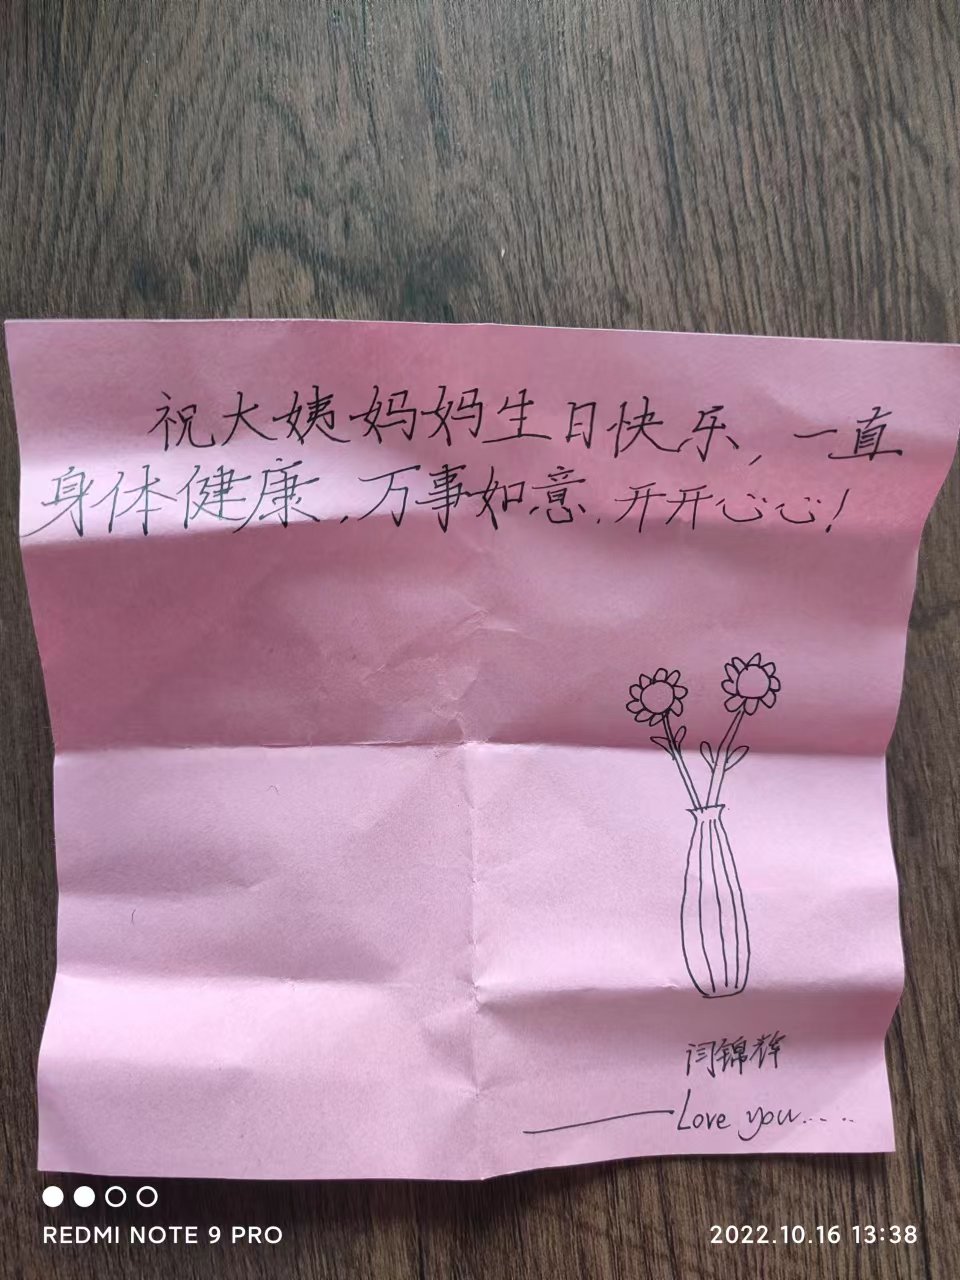 祝大姨妈妈生日快乐，一直
身体健康，万事如意，开开心心！
闫锦辉
——Love you.....
REDMI NOTE 9 PRO
2022.10.16 13:38